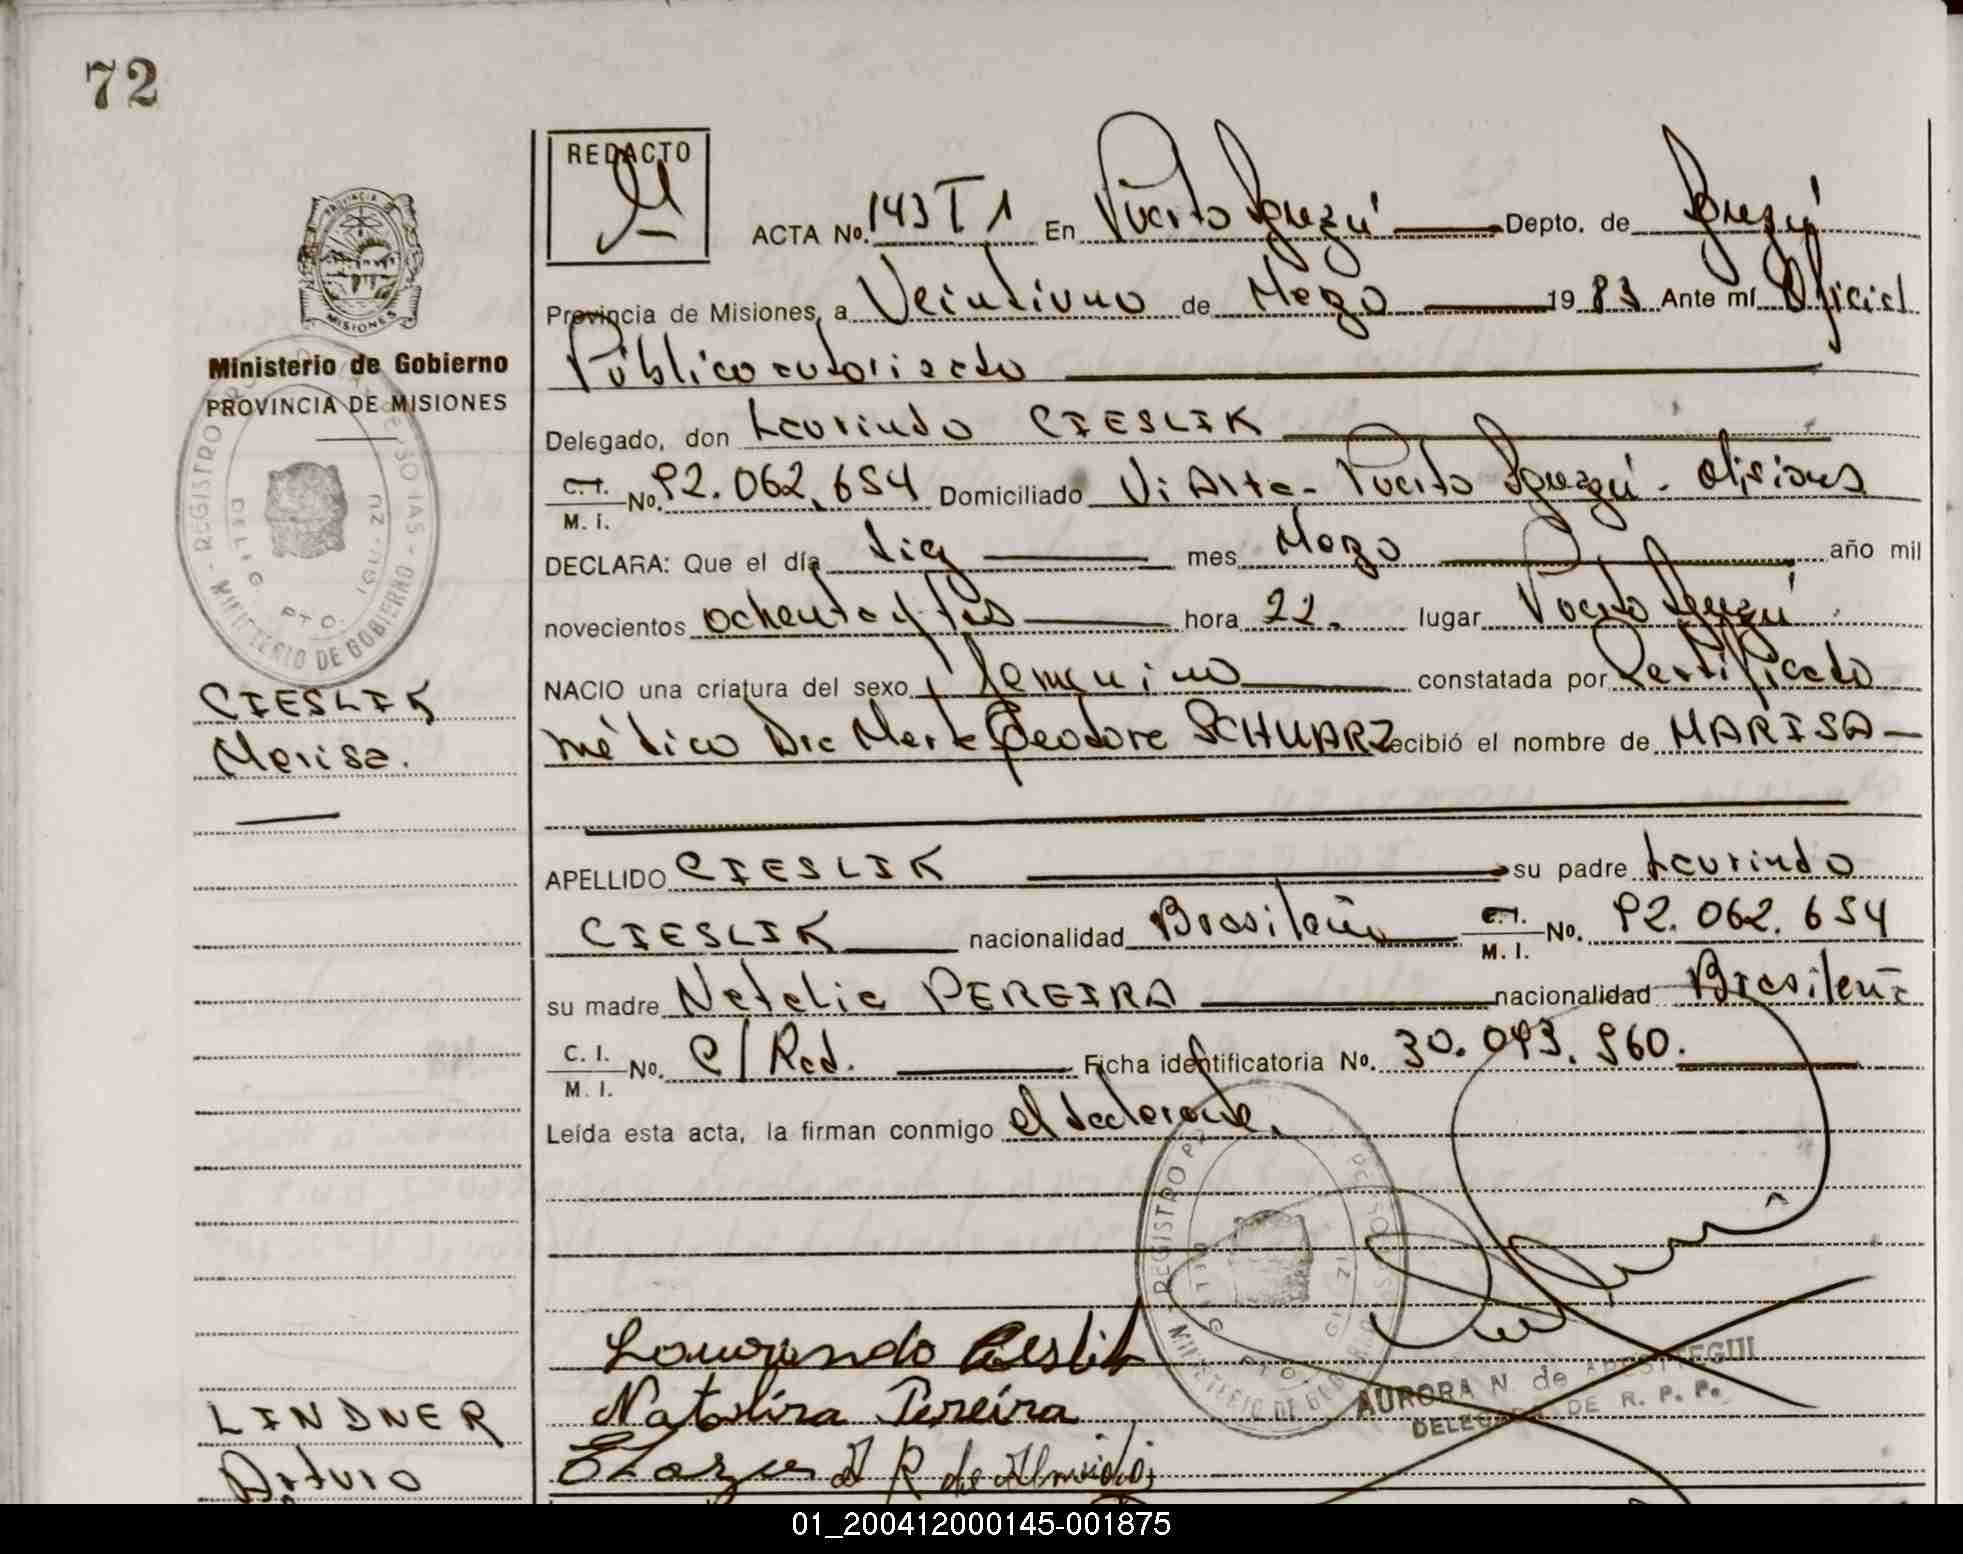 72
REDACTO
ACTA No. 143 T 1 En Puerto Iguazú Depto. de Iguazú
Provincia de Misiones, a Veintiuno de Mayo 1983 Ante mí Oficial
Público autorizado
Delegado, don Laurindo CIESLIK
C. I.
M. I. No. 92.062.654 Domiciliado Vi Alta - Puerto Iguazú - Misiones
DECLARA: Que el día diez mes Mayo año mil
novecientos ochenta y tres hora 22. lugar Puerto Iguazú
NACIO una criatura del sexo femenino constatada por Certificado
médico Dra Marta Teodora SCHWARZ recibió el nombre de MARISA
APELLIDO CIESLIK su padre Laurindo
CIESLIK nacionalidad Brasileña C. I.
M. I. No. 92.062.654
su madre Natalia PEREIRA nacionalidad Brasileña
C. I.
M. I. No. C/Rad. Ficha identificatoria No. 30.043.960.
Leída esta acta, la firman conmigo el declarante.
PROVINCIA DE
MISIONES
Ministerio de Gobierno
PROVINCIA DE MISIONES
REGISTRO
MINISTERIO DE GOBIERNO
PTO.
CIESLIK
Marisa.
LINDNER
Arturo
REGISTRO
MINISTERIO DE
PTO.
Natalina Pereira
AURORA N. de APESTEGUI
DELEGADA DE R. P. P.
01_200412000145-001875